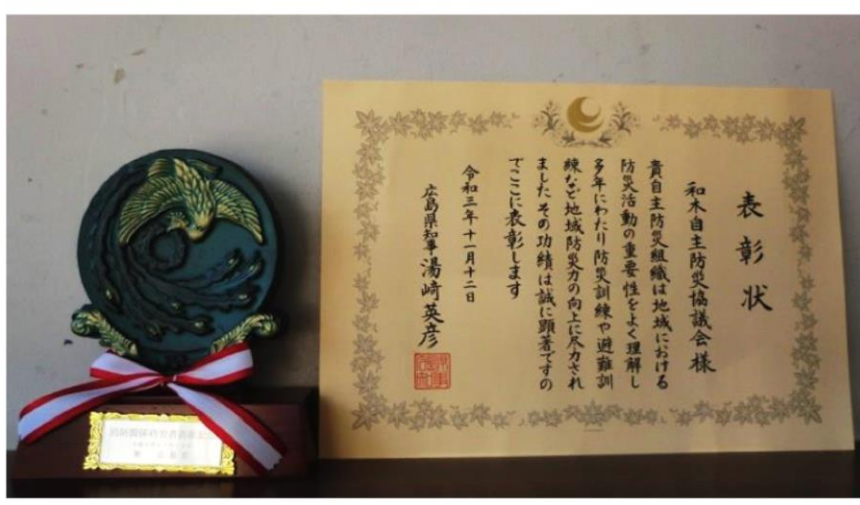 表彰状
和木自主防災協議会様
貴自主防災組織は地域における
防災活動の重要性をよく理解し
多年にわたり防災訓練や避難訓
練など地域防災力の向上に尽力され
ましたその功績は誠に顕著ですの
でここに表彰します
令和三年十一月十二日
広島県知事湯﨑英彦